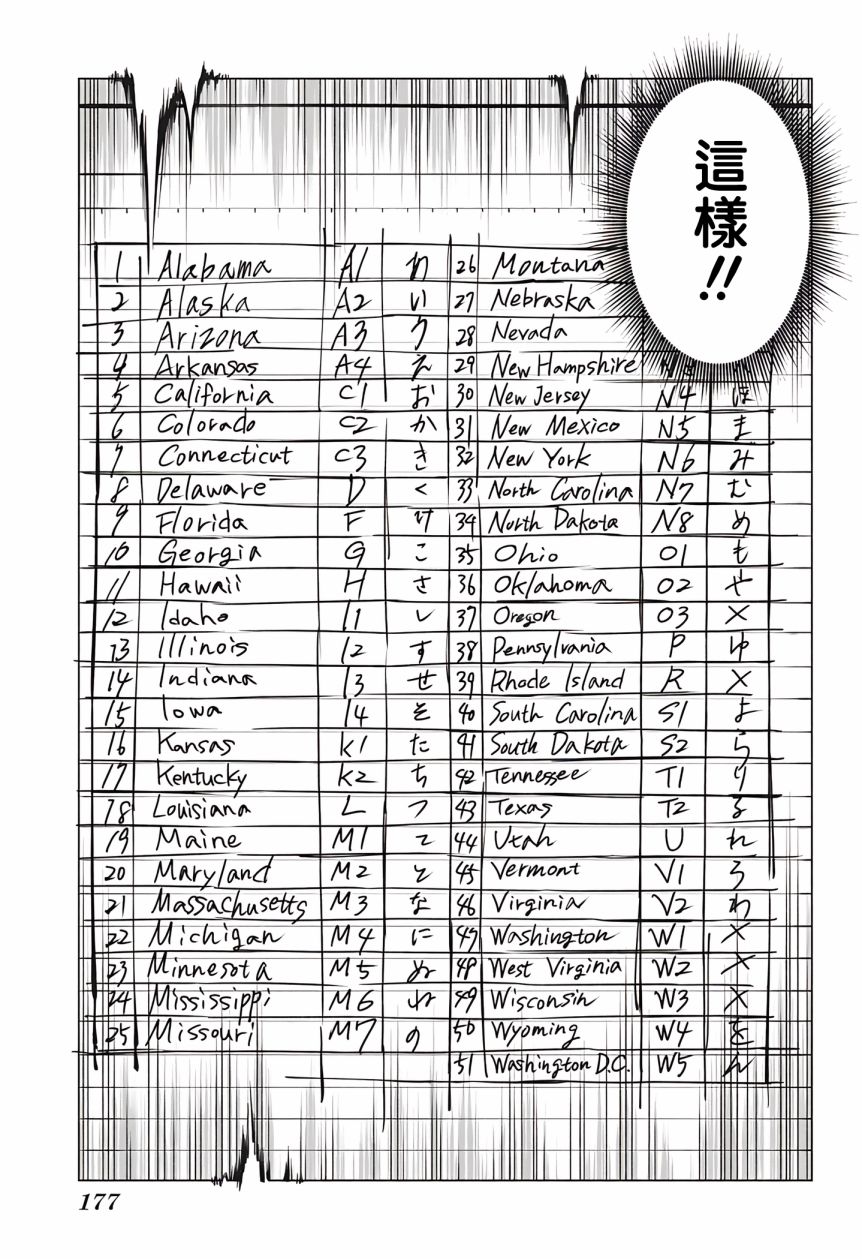 這樣!!
1 Alabama A1
2 Alaska A2 い
3 Arizona A3 う
4 Arkansas A4 え
5 California C1 お
6 Colorado C2 か
7 Connecticut C3 き
8 Delaware D く
9 Florida F け
10 Georgia G こ
11 Hawaii H さ
12 Idaho I1 し
13 Illinois I2 す
14 Indiana I3 せ
15 Iowa I4 そ
16 Kansas K1 た
17 Kentucky K2 ち
18 Louisiana L つ
19 Maine M1 て
20 Maryland M2 と
21 Massachusetts M3 な
22 Michigan M4 に
23 Minnesota M5 ぬ
24 Mississippi M6 ね
25 Missouri M7 の
26 Montana
27 Nebraska
28 Nevada
29 New Hampshire
30 New Jersey N4 ほ
31 New Mexico N5 ま
32 New York N6 み
33 North Carolina N7 む
34 North Dakota N8 め
35 Ohio O1 も
36 Oklahoma O2 や
37 Oregon O3 ×
38 Pennsylvania P ゆ
39 Rhode Island R ×
40 South Carolina S1 よ
41 South Dakota S2 ら
42 Tennessee T1 り
43 Texas T2 る
44 Utah U れ
45 Vermont V1 ろ
46 Virginia V2 わ
47 Washington W1 ×
48 West Virginia W2 ×
49 Wisconsin W3 ×
50 Wyoming W4 を
51 Washington D.C. W5 ん
177